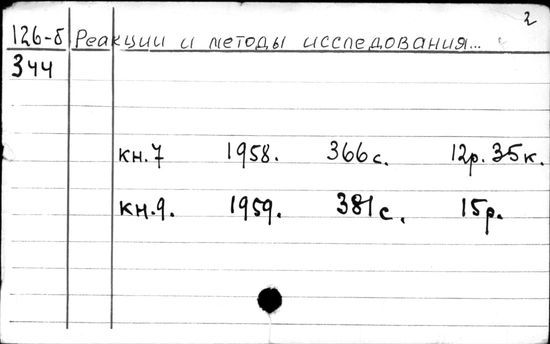 2
126-б Реакции и методы исследования...
344
кн.7 1958. 366 с. 12р. 35к.
кн.9. 1959. 381 с. 15р.